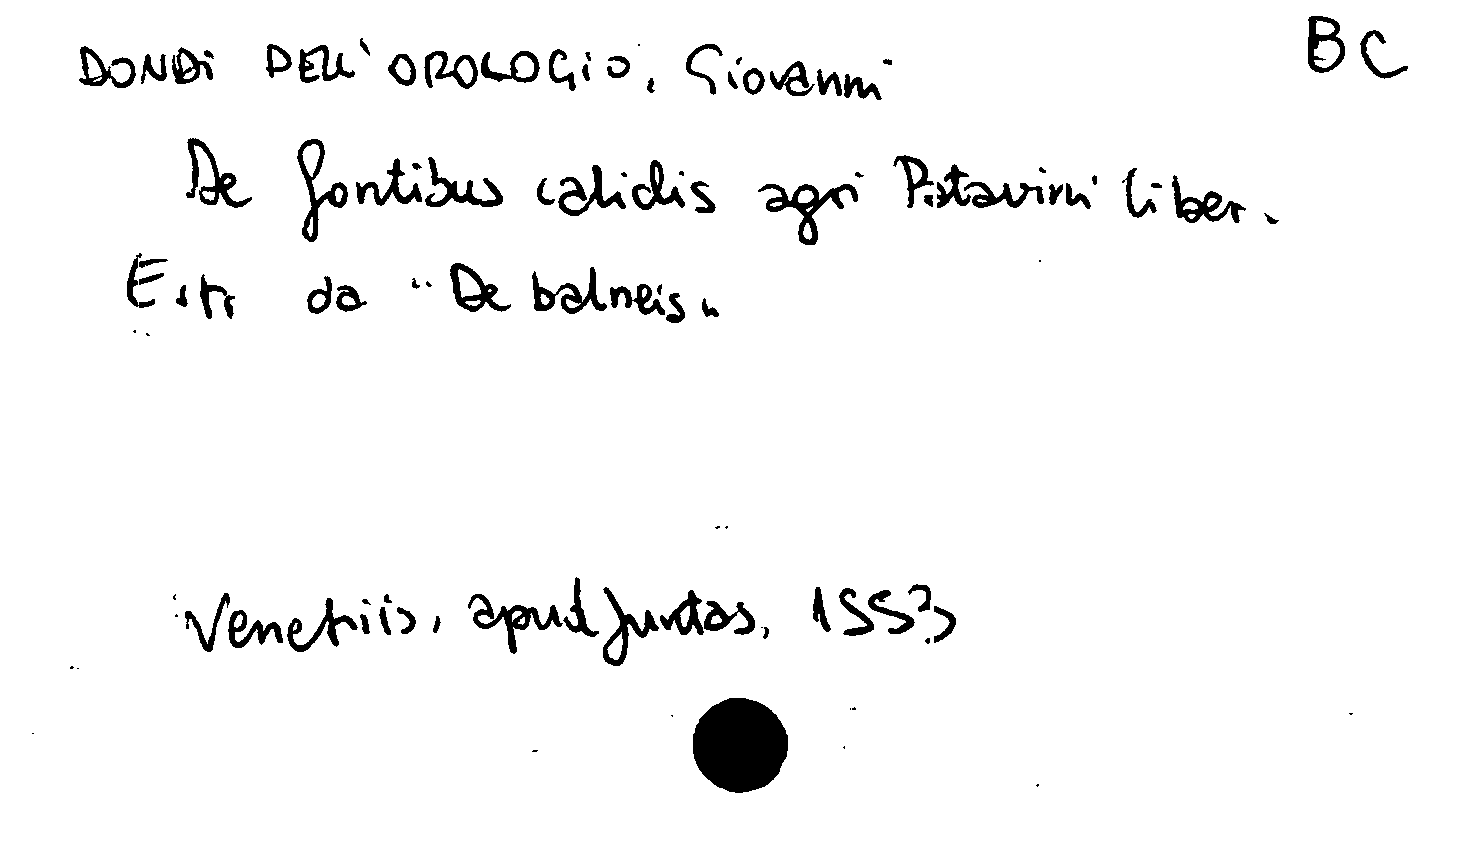 DONDI DELL'OROLOGIO, Giovanni
BC
De fontibus calidis agri Patavini liber.
Estr da "De balneis"
Venetiis, apud Juntas, 1553